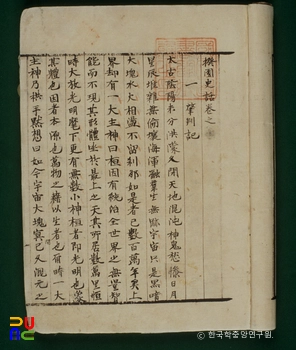 揆園史話卷之
一 肇判記
太古陰陽未分洪濛久閉天地混沌神鬼愁慘日月
星辰堆雜無倫壤海渾融羣生無跡宇宙只是黑暗
大塊水火相盪不留刹那如是者已數百萬年矣上
界却有一大主神曰桓因有統治全世界之無量智
能而不現其形體坐於最上之天其所居數萬里恒
時大放光明麾下更有無數小神桓者卽光明也象
其體也因者本源也萬物之藉以生者也爾時一大
主神乃拱手默想曰如今宇宙大塊冥已久混元之
한국학중앙연구원